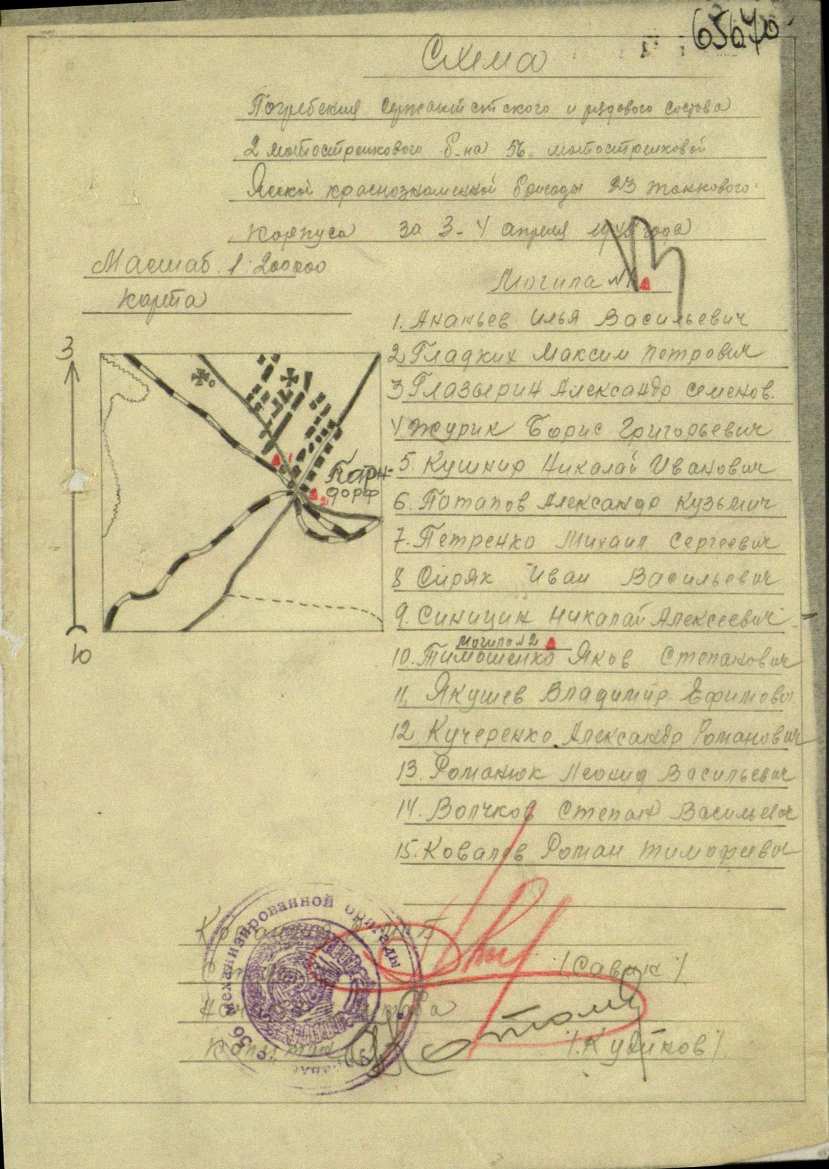 65670
Схема
Погребения сержантского и рядового состава
2 мотострелкового б-на 56. мотострелковой
Ясской краснознаменной бригады 23 танкового
Корпуса за 3-4 апреля 1945 года
Масштаб 1:200000
карта
Могила №1
1. Ананьев Илья Васильевич
2 Гладких Максим Петрович
3 Глазырин Александр Семенов.
4 Журик Борис Григорьевич
5. Кушнир Николай Иванович
6. Потапов Александр Кузьмич
7. Петренко Михаил Сергеевич
8 Сиряк Иван Васильевич
9. Синицин Николай Алексеевич
Могила №2
10. Тимошенко Яков Степанович
11, Якушев Владимир Ефимович
12. Кучеренко Александр Романович
13. Романюк Леонид Васильевич
14. Волчков Степан Васильевич
15. Ковалев Роман Тимофеевич
З
Ю
Парн-
дорф
механизированной бригады
56
/Савик/
/Куликов/